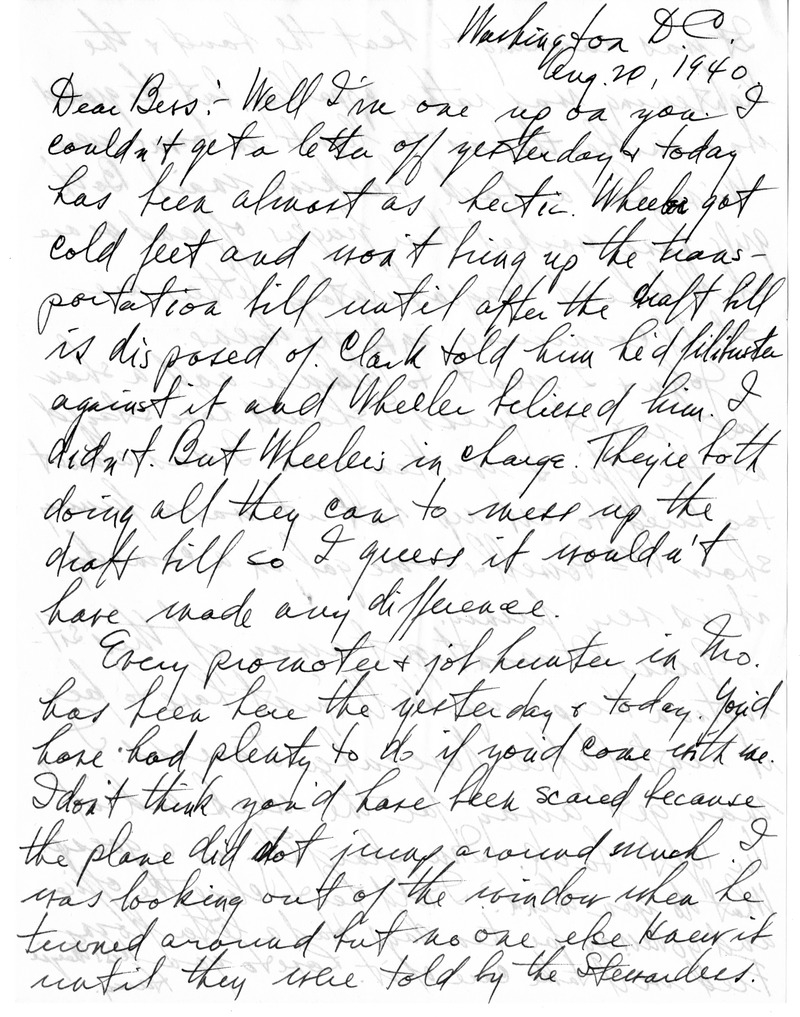 Washington D.C.
Aug. 20, 1940.
Dear Bess:- Well I'm one up on you. I
couldn't get a letter off yesterday & today
has been almost as hectic. Wheeler got
cold feet and won't bring up the trans-
portation bill until after the draft bill
is disposed of. Clark told him he'd filibuster
against it and Wheeler believed him. I
didn't. But Wheeler's in charge. They're both
doing all they can to mess up the
draft bill so I guess it wouldn't
have made any difference.
Every promoter & job hunter in Mo.
has been here the yesterday & today. You'd
have had plenty to do if you'd come with me.
I don't think you'd have been scared because
the plane did not jump around much. I
was looking out of the window when he
turned around but no one else knew it
until they were told by the Stewardess.